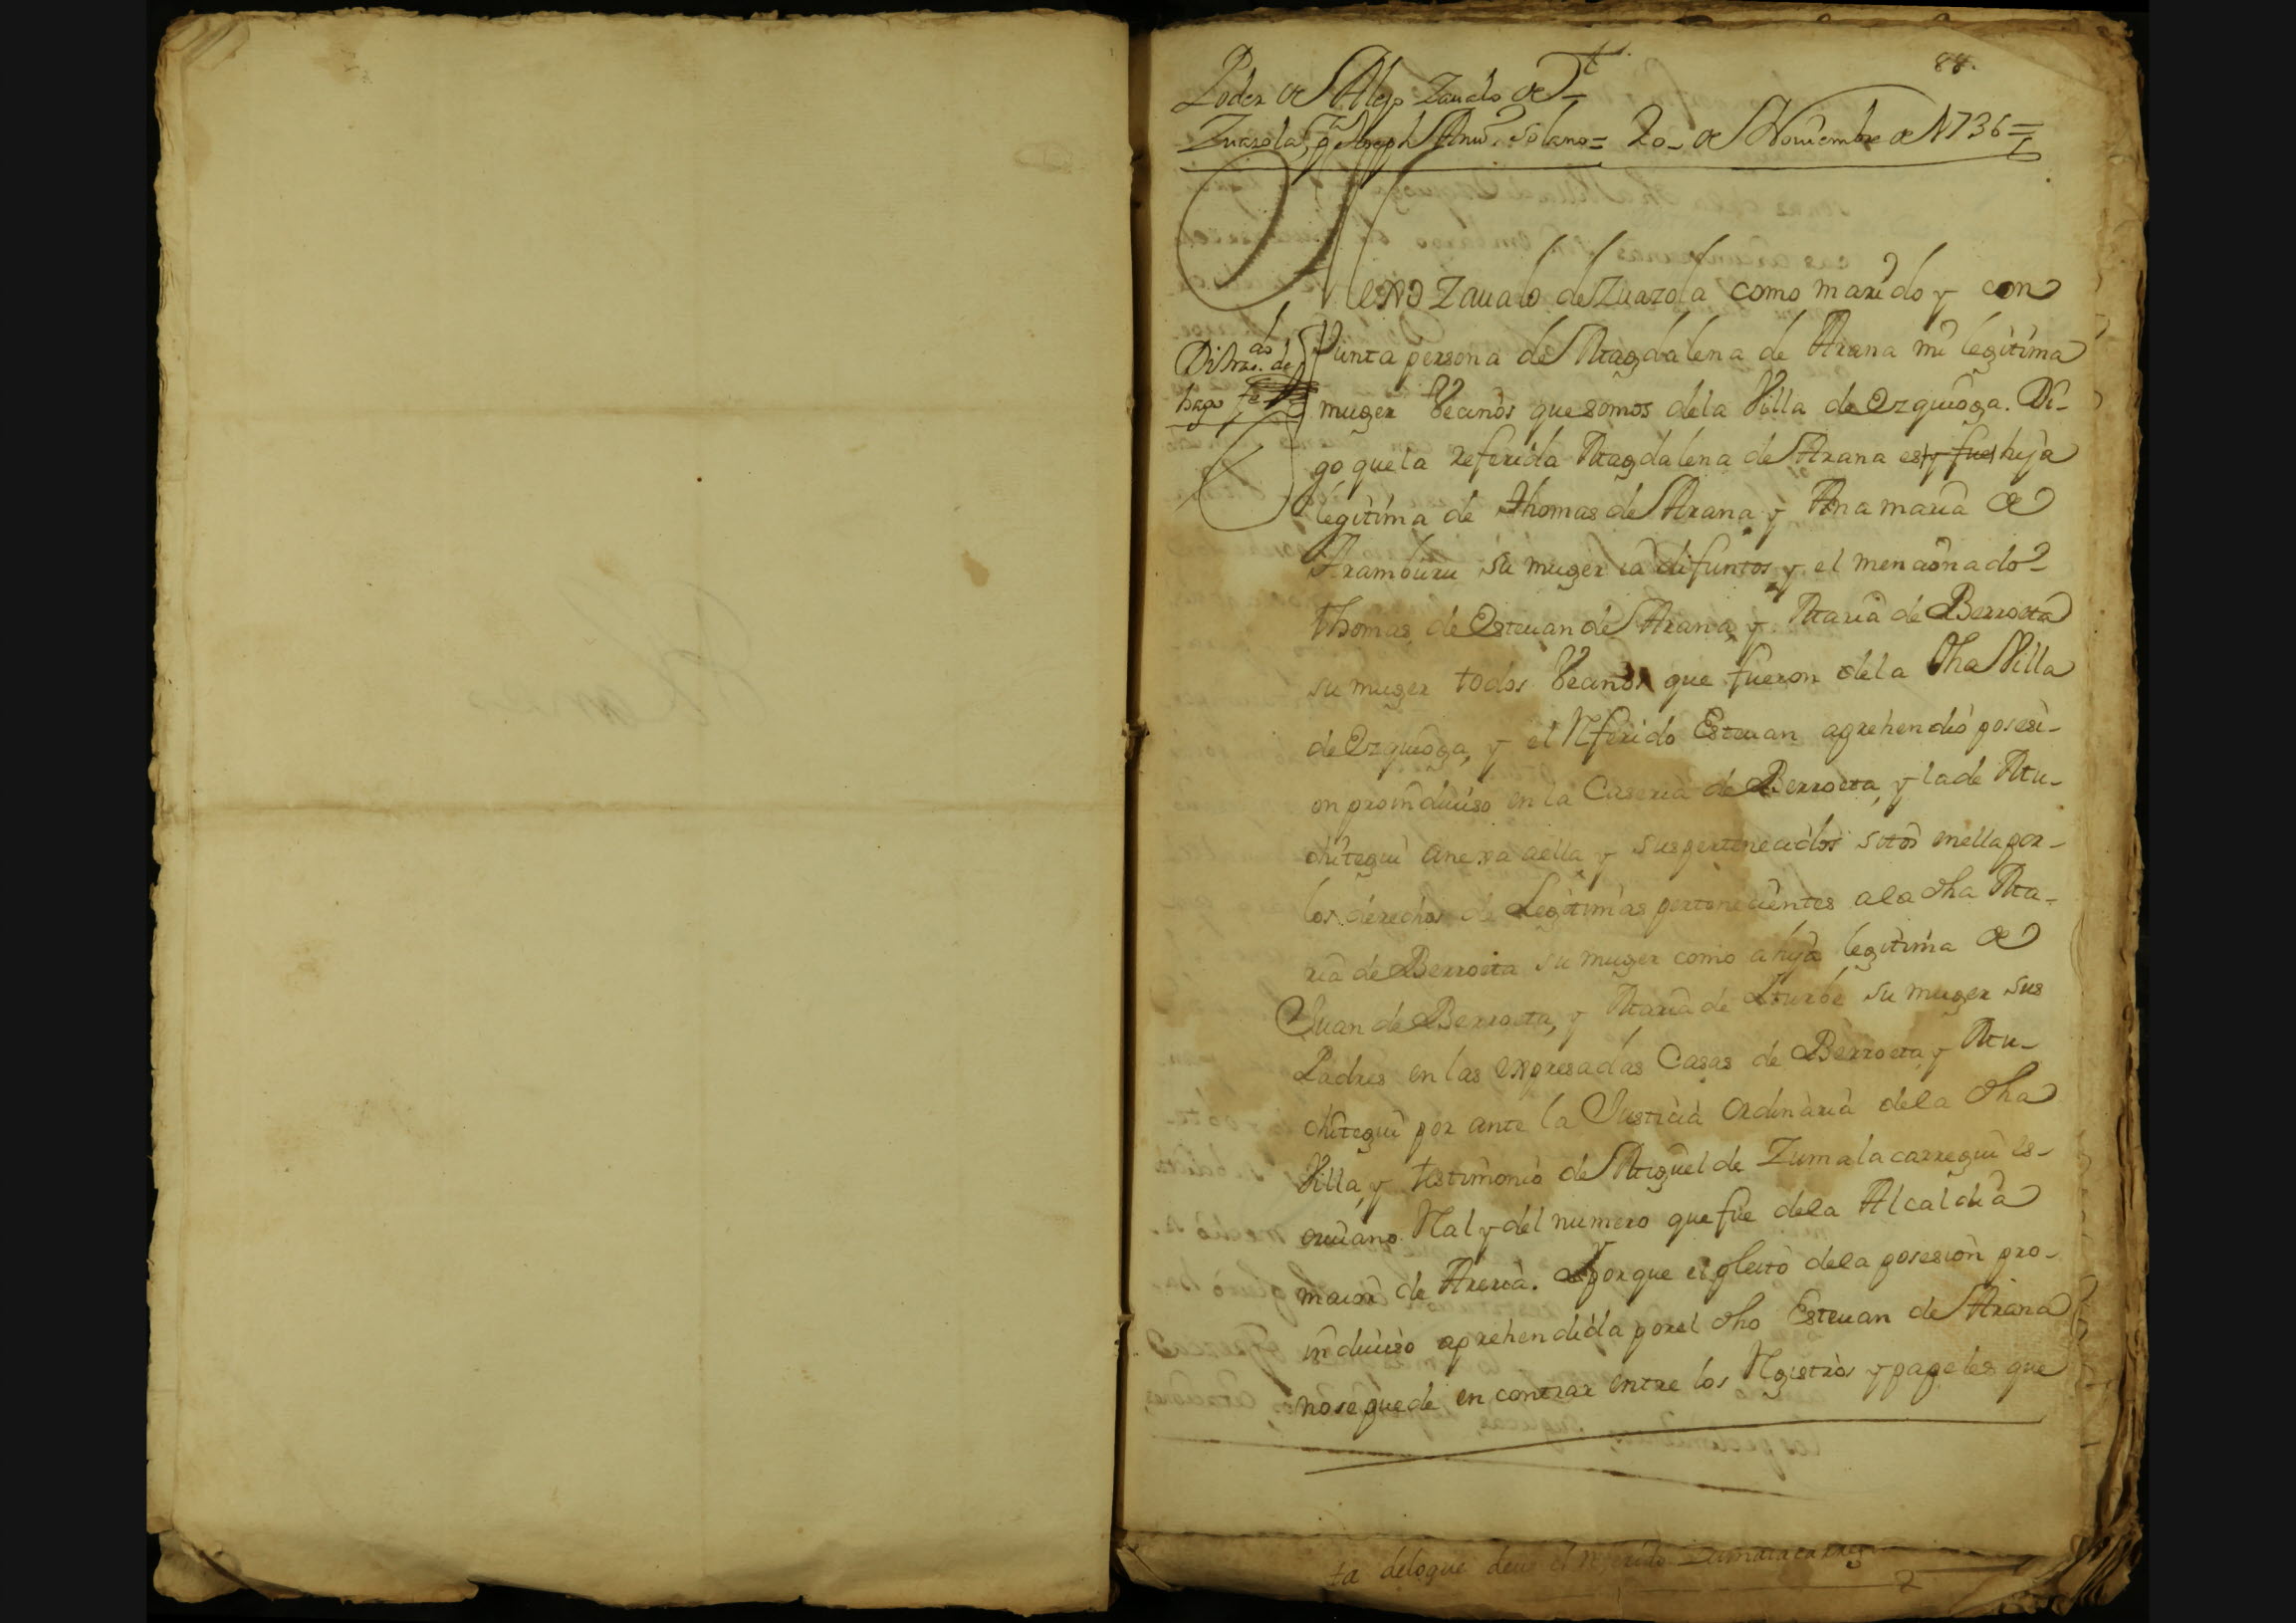 88.
Poder de Alejo Zaualo de
Zuazola, pa Joseph Anto. Solano = 20 de Nouiembre de 1736 =
Alexo Zaualo de Zuazola como marido y con
Junta persona de Magdalena de Arana mi legitima
muger Vecinos que somos de la Villa de Ezquioga. Di-
go que la referida Magdalena de Arana es y fue hija
legitima de Thomas de Arana y Ana maria de
Aramburu su muger ia difuntos, y el mencionado
Thomas de Esteuan de Arana, y Maria de Berroeta
su muger todos Vecinos que fueron de la dha Villa
de Ezquioga, y el Referido Esteuan aprehendio posesi-
on proindiuiso en la Caseria de Berroeta, y la de Mu-
chitegui anexa a ella y sus pertenecidos sitos en ella por
los derechos de Legitimas pertenecientes a la dha Ma-
ria de Berroeta su muger como a hija legitima de
Juan de Berroeta, y Maria de Yturbe su muger sus
Padres en las expresadas Casas de Berroeta y Mu-
chitegui por ante la Justicia Ordinaria de la dha
Villa, y testimonio de Miguel de Zumalacarregui es-
criuano Real y del numero que fue de la Alcaldia
maior de Areria. y porque el pleito de la posesion pro-
indiuiso aprehendida por el dho Esteuan de Arana
no se puede encontrar entre los Registros y papeles que
dos
Dihas. de
hago fe
ta de lo que deue el Referido Zumalacarreg